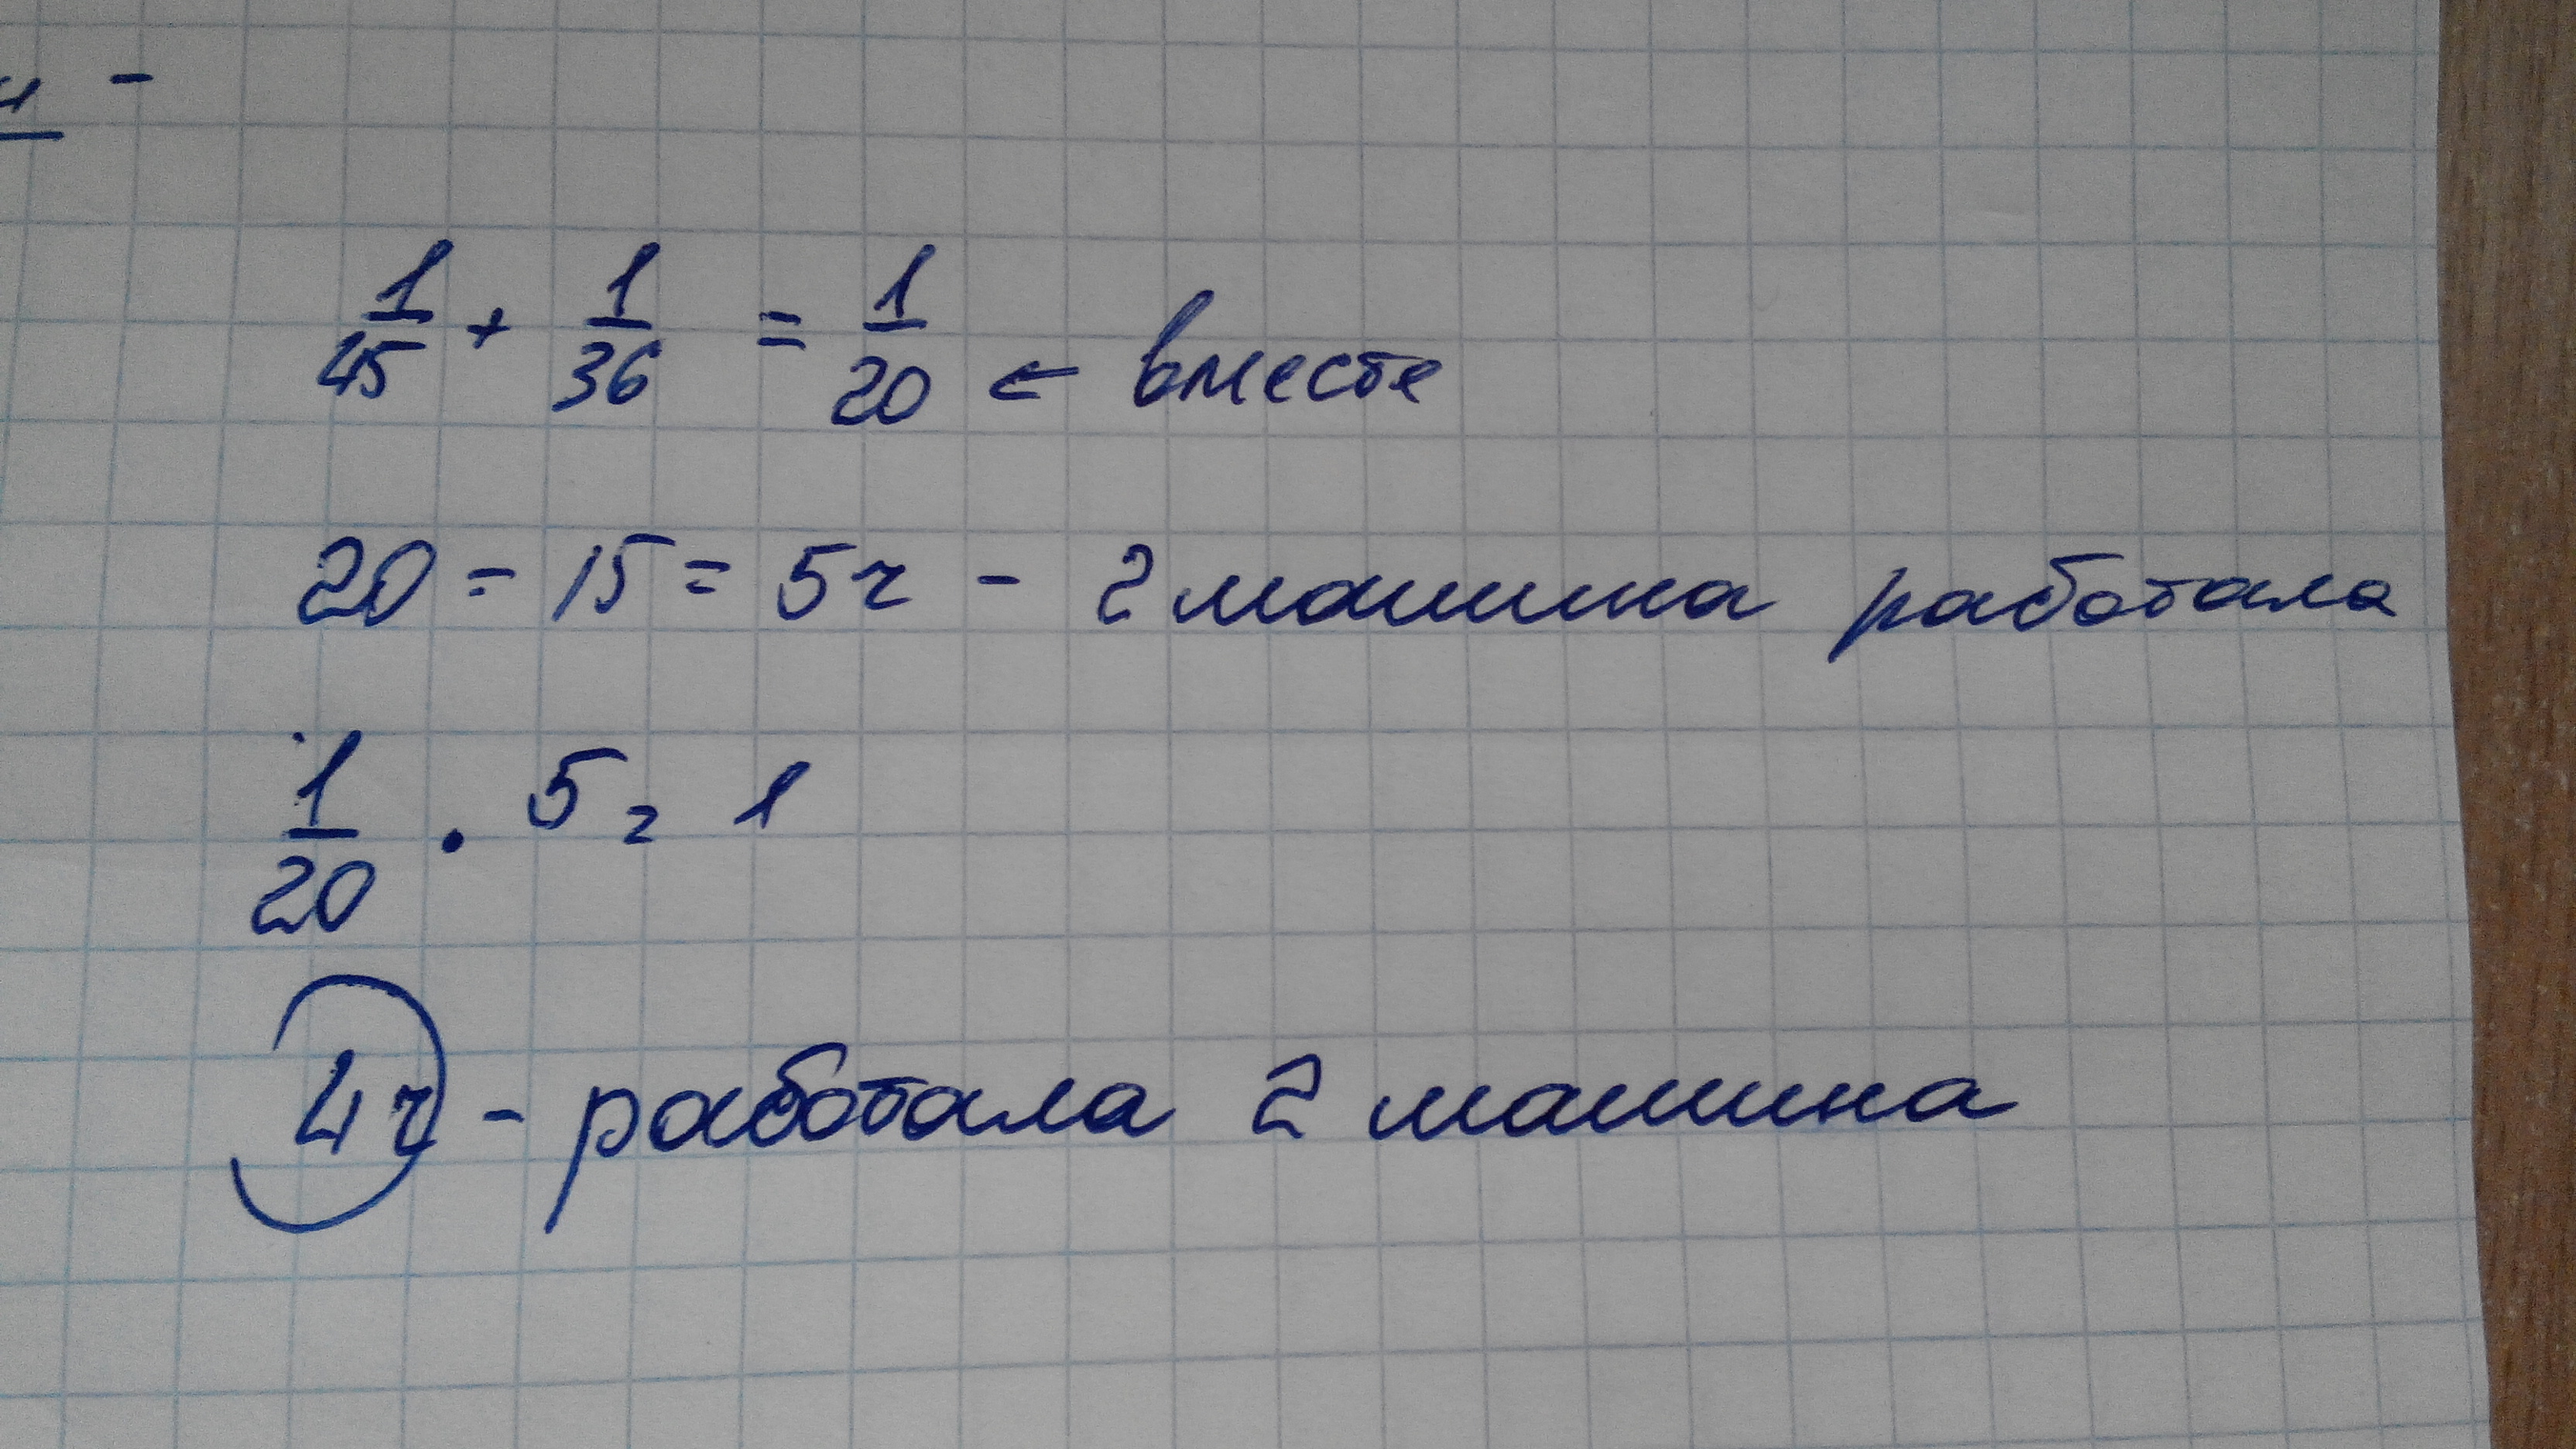 1/45 + 1/36 = 1/20 ← вместе
20 = 15 = 5ч - 2 машина работала
1/20 . 5 = 1
4ч - работала 2 машина